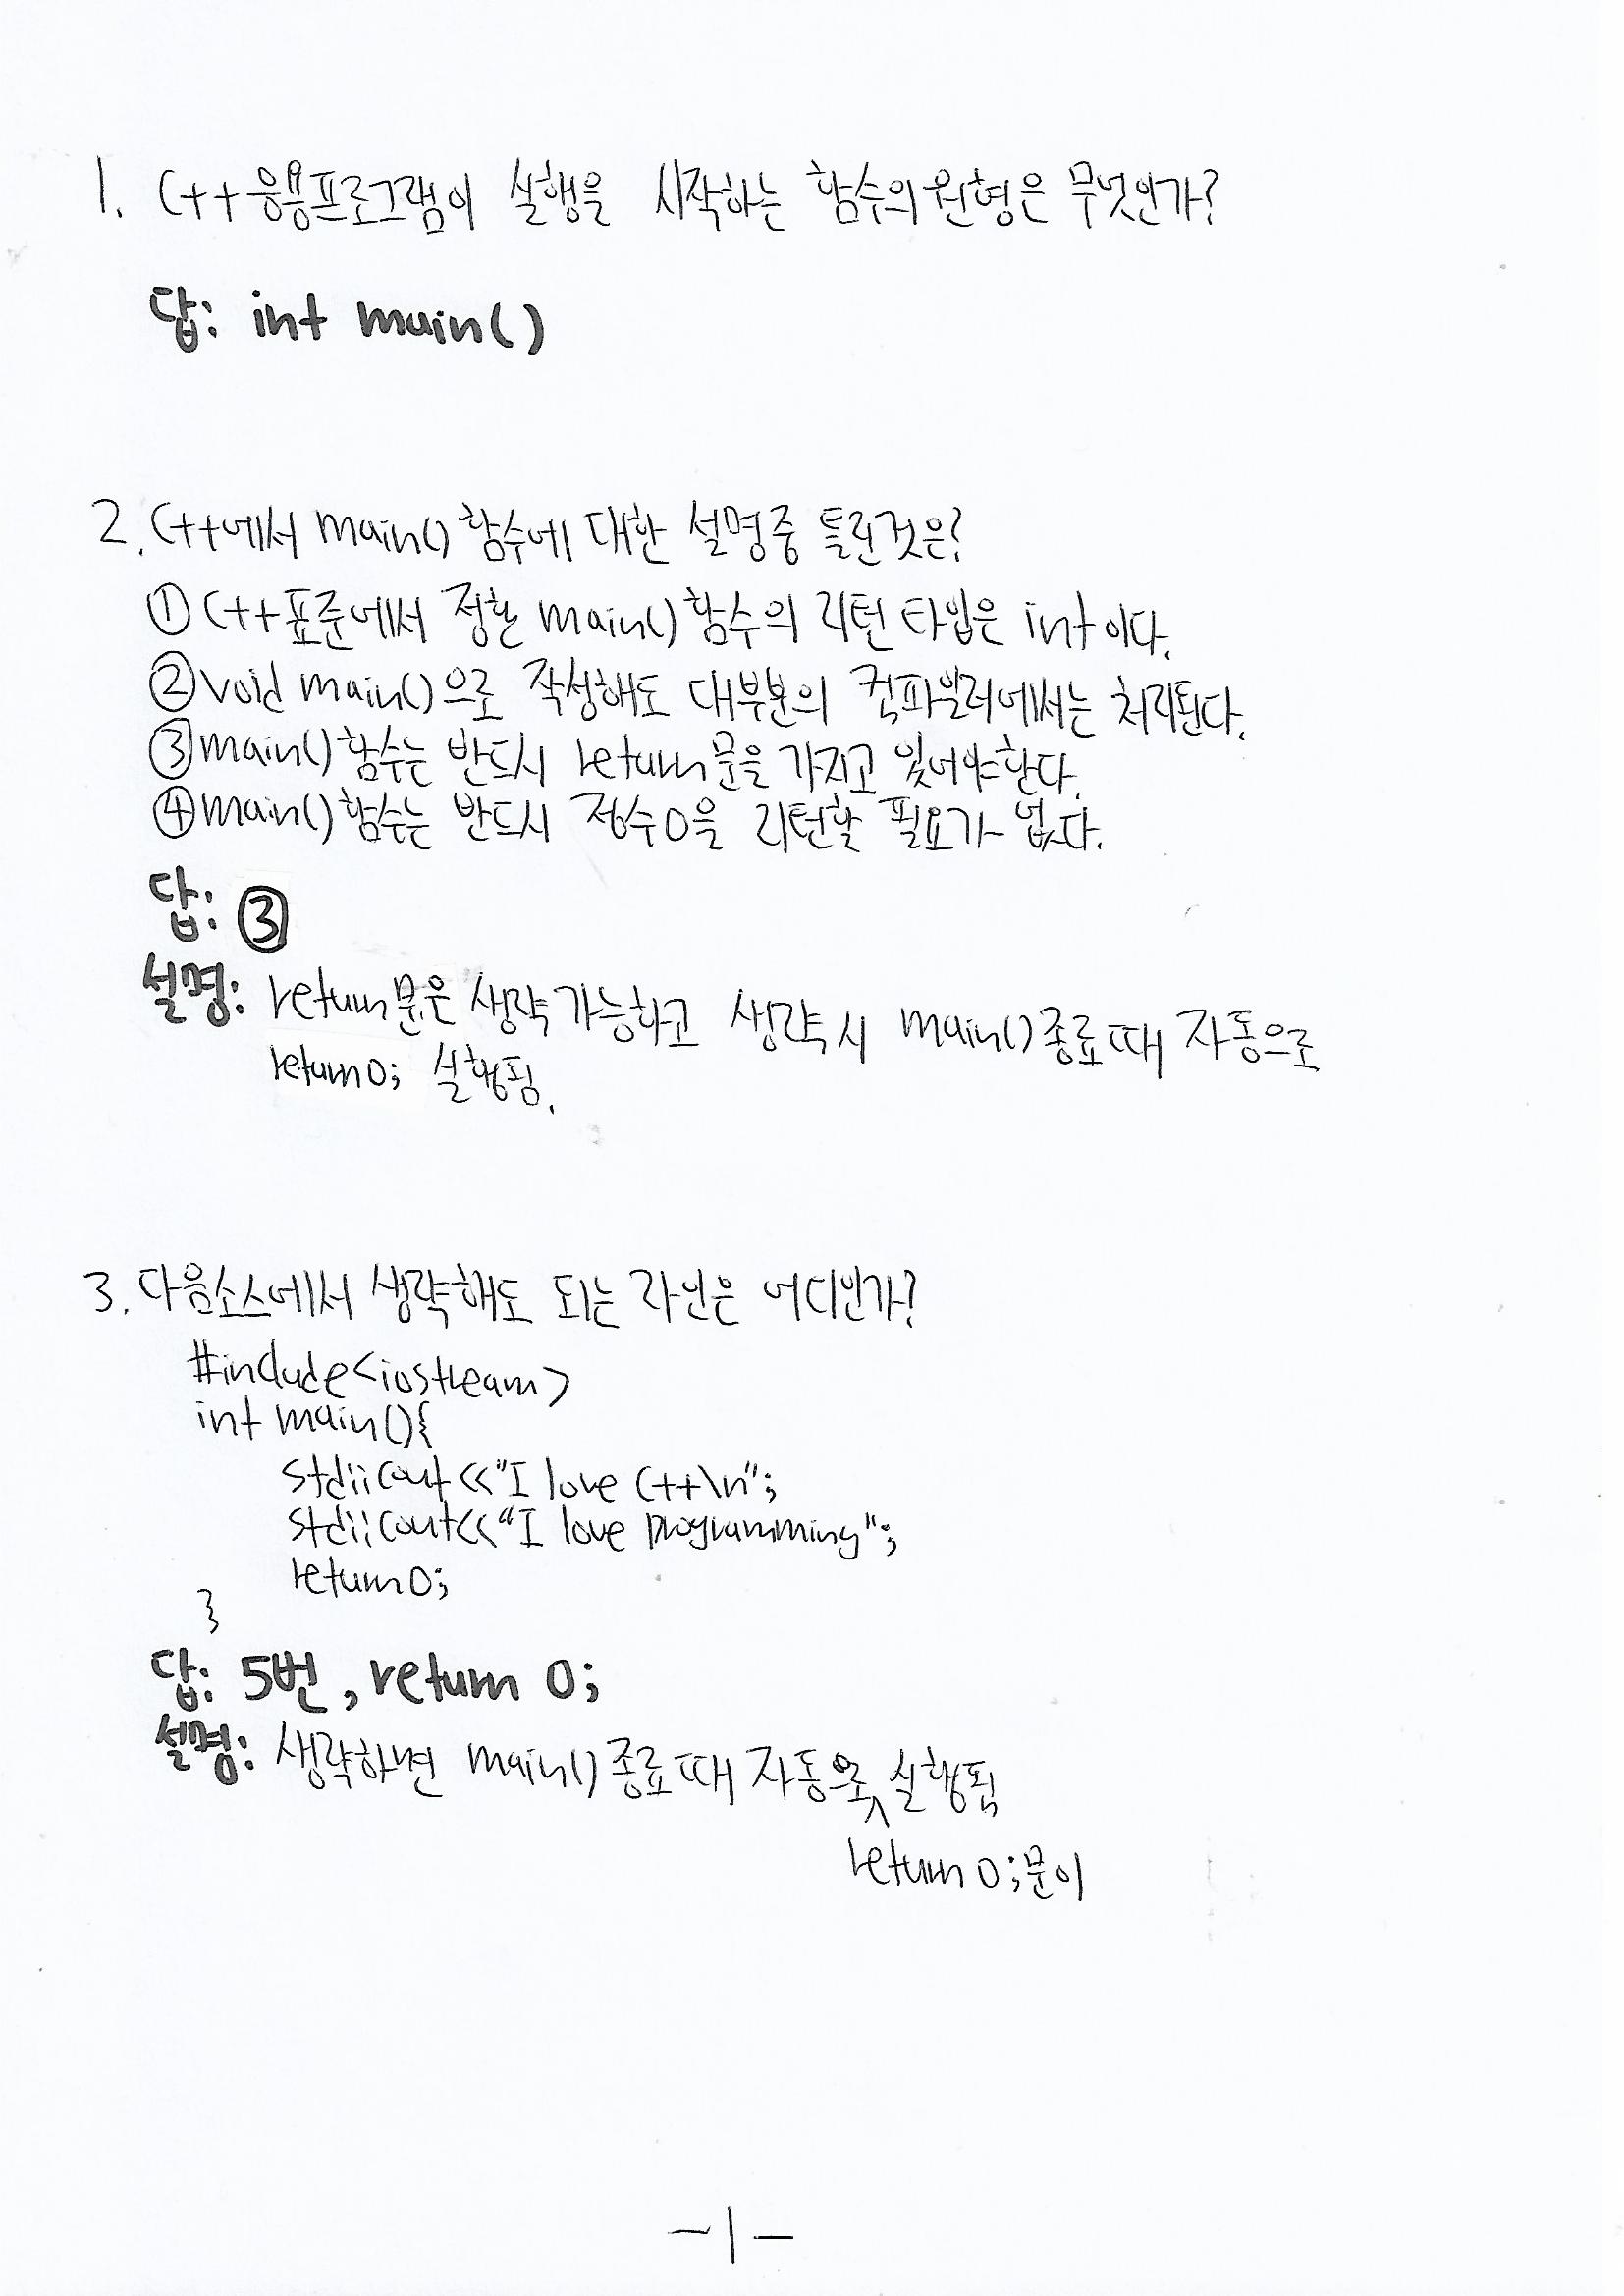 1. C++ 응용프로그램이 실행을 시작하는 함수의 원형은 무엇인가?
답: int main()
2. C++에서 main() 함수에 대한 설명중 틀린것은?
① C++표준에서 정한 main() 함수의 리턴 타입은 int이다.
② void main()으로 작성해도 대부분의 컴파일러에서는 처리된다.
③ main() 함수는 반드시 return문을 가지고 있어야한다.
④ main() 함수는 반드시 정수 0을 리턴할 필요가 없다.
답: ③
설명: return문은 생략 가능하고 생략시 main()종료때 자동으로
return 0; 실행됨.
3. 다음소스에서 생략해도 되는 라인은 어디인가?
#include<iostream>
int main(){
std::cout<<"I love C++\n";
std::cout<<"I love programming";
return 0;
}
답: 5번, return 0;
설명: 생략하면 main()종료때 자동으로 실행됨
return 0;문이
-1-